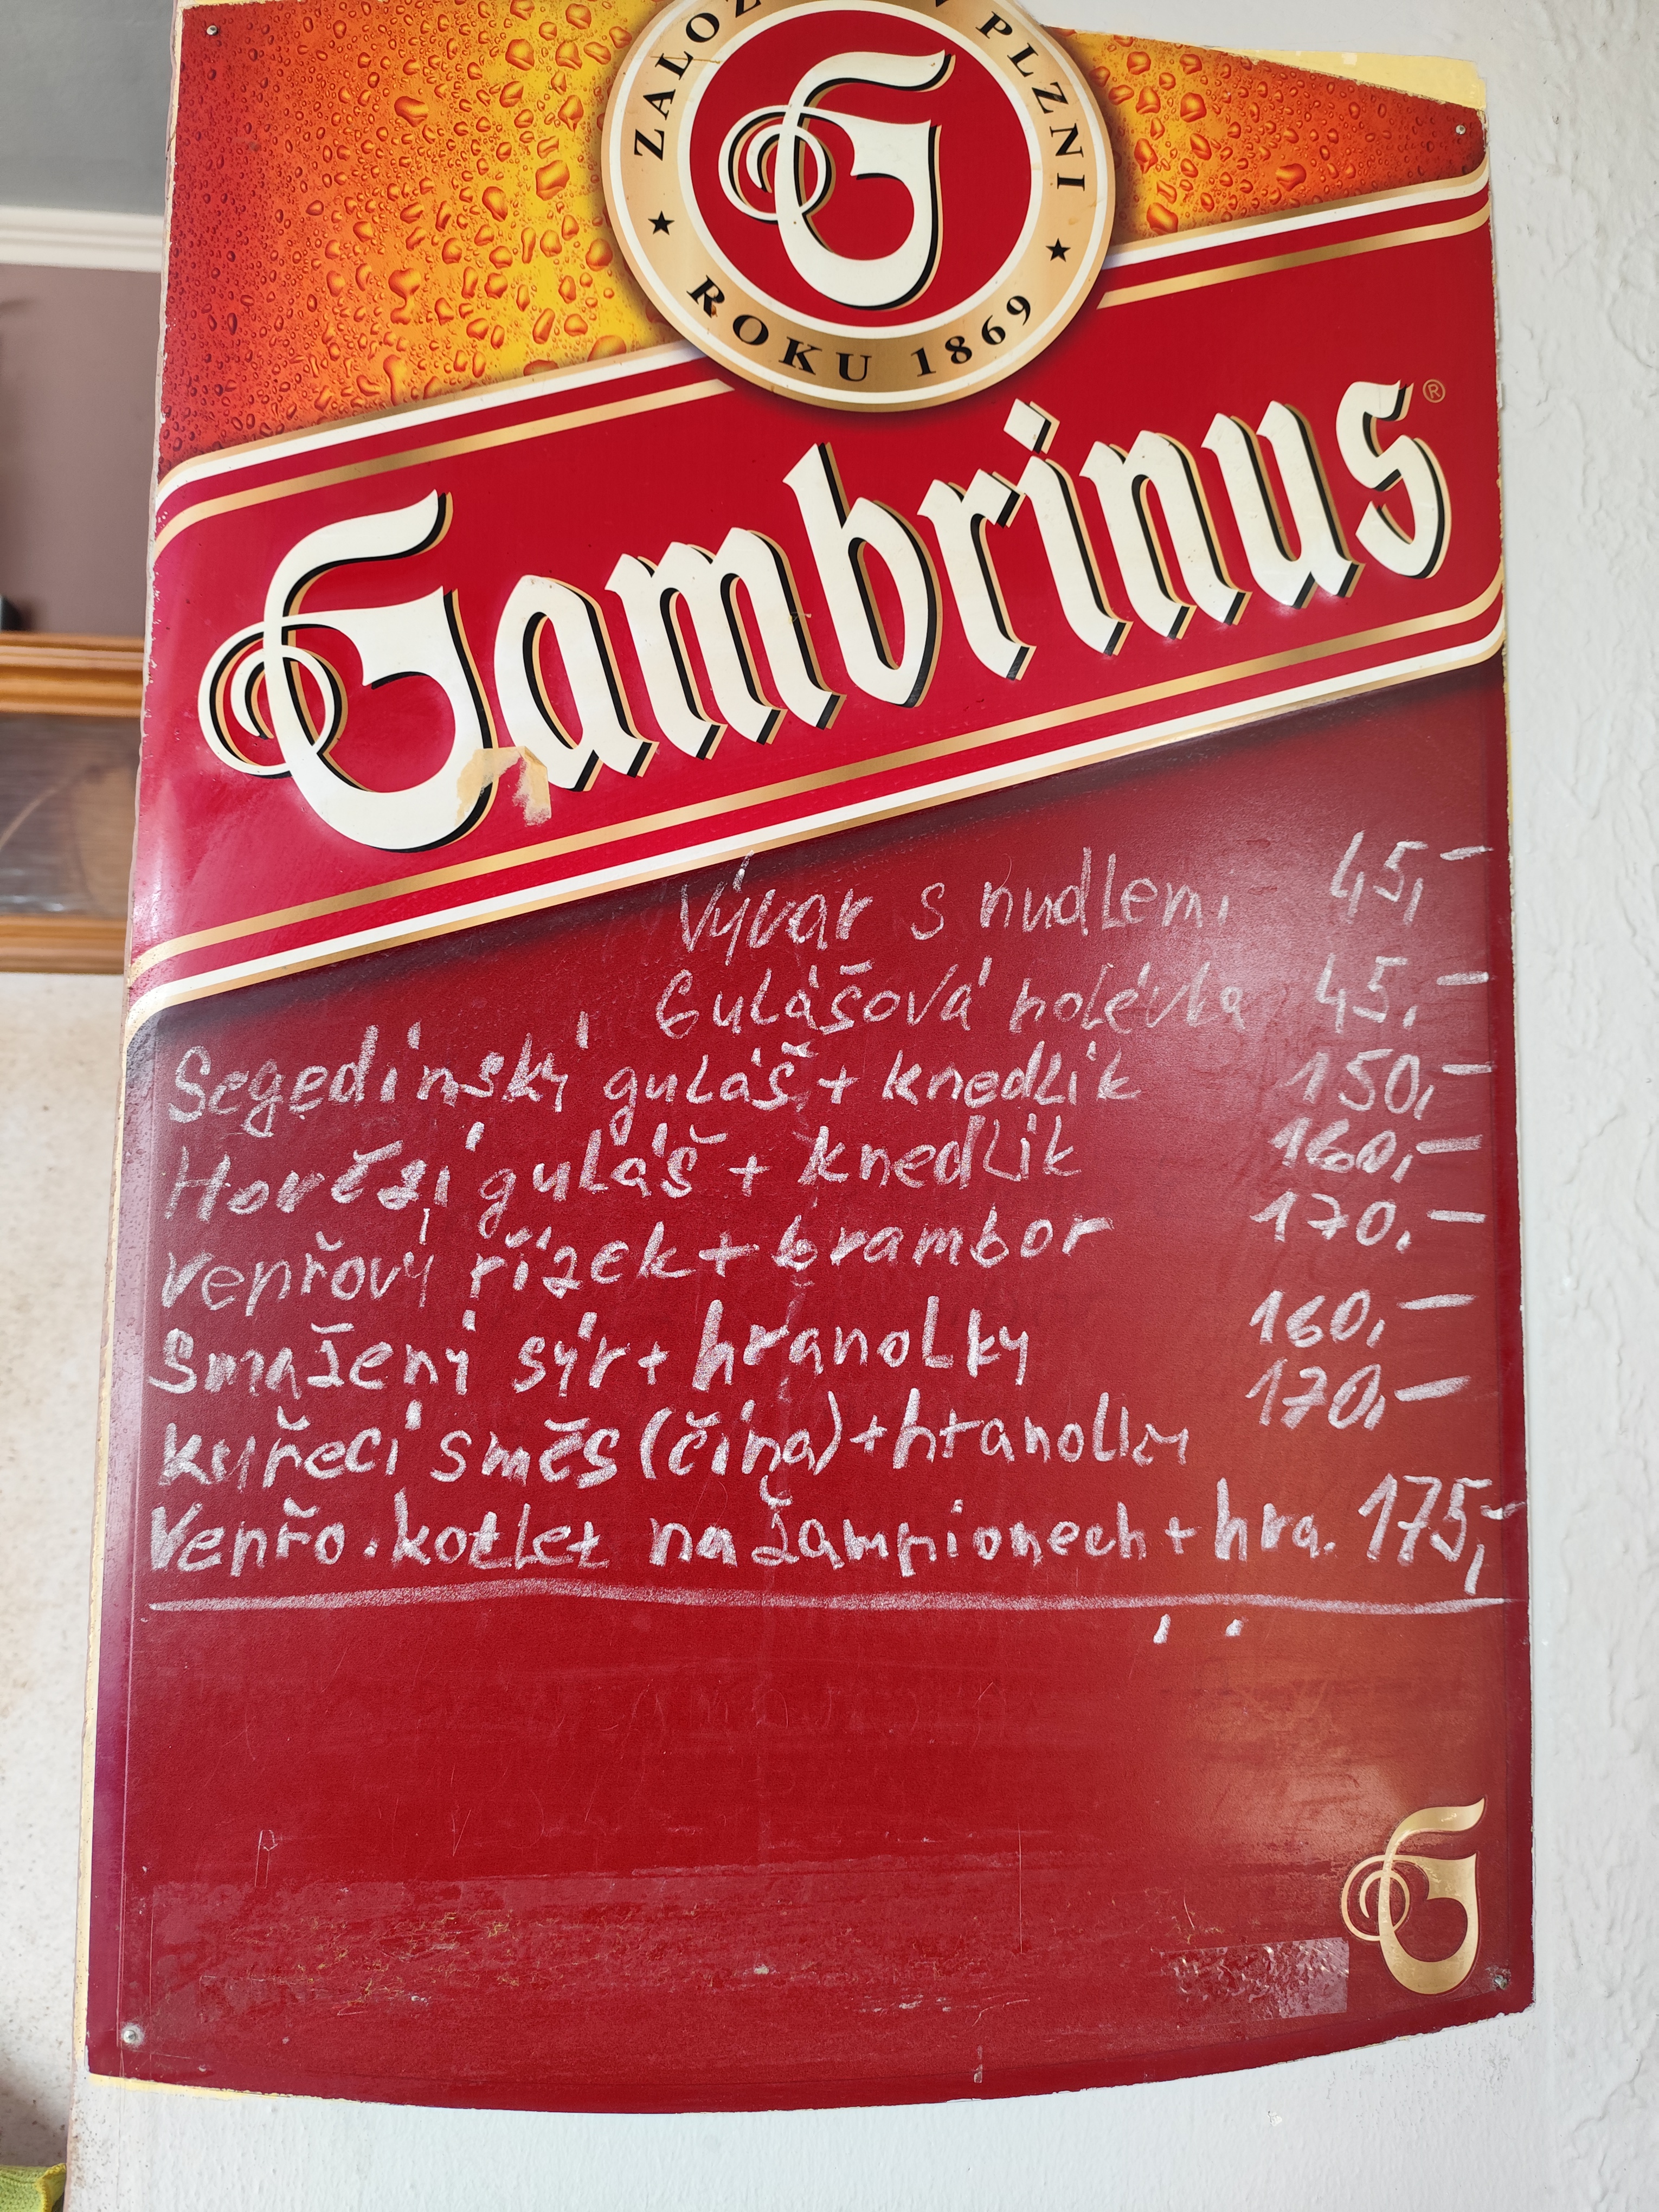 ZALOŽ V PLZNI
ROKU 1869
Gambrinus ®
Vývar s nudlemi 45,-
Gulášová polévka 45,-
Segedínský guláš + knedlík 150,-
Hovězí guláš + knedlík 160,-
Vepřový řízek + brambor 170,-
Smažený sýr + hranolky 160,-
Kuřecí směs (čína) + hranolky 170,-
Vepřo. kotlet na žampionech + hra. 175,-